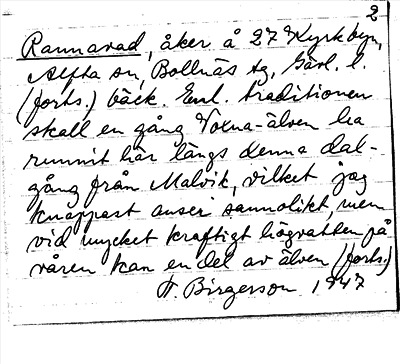 2
Rannarad, åker å 27 Kyrkbyn,
Alfta sn, Bollnäs tg, Gävl. l.
(forts.) bäck. Enl. traditionen
skall en gång Voxna-älven ha
runnit här längs denna dal-
gång från Malvik, vilket jag
knappast anser sannolikt, men
vid mycket kraftigt högvatten på
våren kan en del av älven (forts.)
F. Birgerson 1947